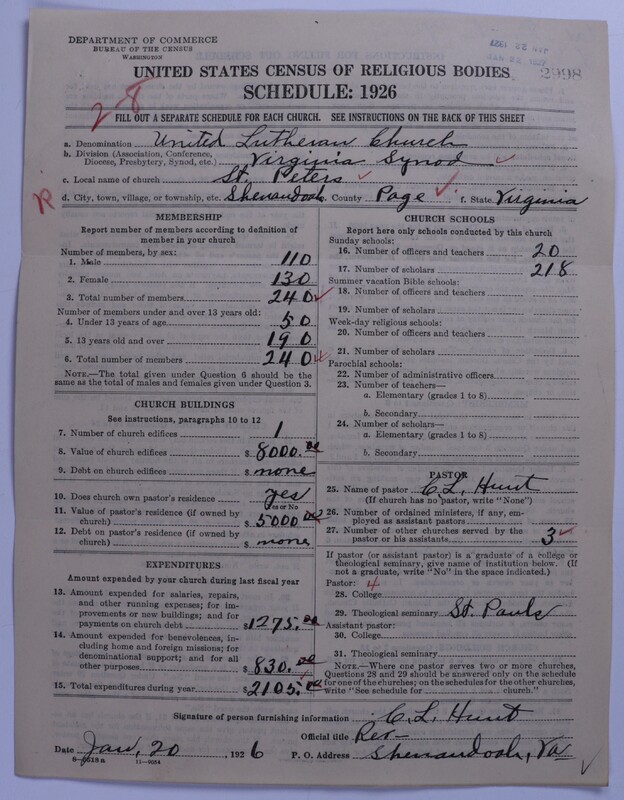 DEPARTMENT OF COMMERCE
BUREAU OF THE CENSUS
WASHINGTON
2998
UNITED STATES CENSUS OF RELIGIOUS BODIES
SCHEDULE: 1926
2-8
FILL OUT A SEPARATE SCHEDULE FOR EACH CHURCH. SEE INSTRUCTIONS ON THE BACK OF THIS SHEET
a. Denomination United Lutheran Church
b. Division (Association, Conference, Diocese, Presbytery, Synod, etc.) Virginia Synod
c. Local name of church St. Peters
d. City, town, village, or township, etc. Shenandoah e. County Page f. State Virginia
MEMBERSHIP
Report number of members according to definition of member in your church
Number of members, by sex:
1. Male 110
2. Female 130
3. Total number of members 240
Number of members under and over 13 years old:
4. Under 13 years of age 50
5. 13 years old and over 190
6. Total number of members 240
NOTE.—The total given under Question 6 should be the same as the total of males and females given under Question 3.
CHURCH BUILDINGS
See instructions, paragraphs 10 to 12
7. Number of church edifices 1
8. Value of church edifices $ 8000.00
9. Debt on church edifices $ none
10. Does church own pastor's residence yes
Yes or No
11. Value of pastor's residence (if owned by church) $ 5000.00
12. Debt on pastor's residence (if owned by church) $ none
EXPENDITURES
Amount expended by your church during last fiscal year
13. Amount expended for salaries, repairs, and other running expenses; for improvements or new buildings; and for payments on church debt $ 1275.00
14. Amount expended for benevolences, including home and foreign missions; for denominational support; and for all other purposes $ 830.00
15. Total expenditures during year $ 2105.00
CHURCH SCHOOLS
Report here only schools conducted by this church
Sunday schools:
16. Number of officers and teachers 20
17. Number of scholars 218
Summer vacation Bible schools:
18. Number of officers and teachers
19. Number of scholars
Week-day religious schools:
20. Number of officers and teachers
21. Number of scholars
Parochial schools:
22. Number of administrative officers
23. Number of teachers—
a. Elementary (grades 1 to 8)
b. Secondary
24. Number of scholars—
a. Elementary (grades 1 to 8)
b. Secondary
PASTOR
25. Name of pastor C. L. Hunt
(If church has no pastor, write "None")
26. Number of ordained ministers, if any, employed as assistant pastors
27. Number of other churches served by the pastor or his assistants 3
If pastor (or assistant pastor) is a graduate of a college or theological seminary, give name of institution below. (If not a graduate, write "No" in the space indicated.)
Pastor: 4
28. College
29. Theological seminary St. Pauls
Assistant pastor:
30. College
31. Theological seminary
NOTE.—Where one pastor serves two or more churches, Questions 28 and 29 should be answered only on the schedule for one of the churches; on the schedules for the other churches, write "See schedule for church."
Signature of person furnishing information C. L. Hunt
Official title Rev-
Date Jan, 20 1926 P. O. Address Shenandoah, Va
8-5518a 11-9054